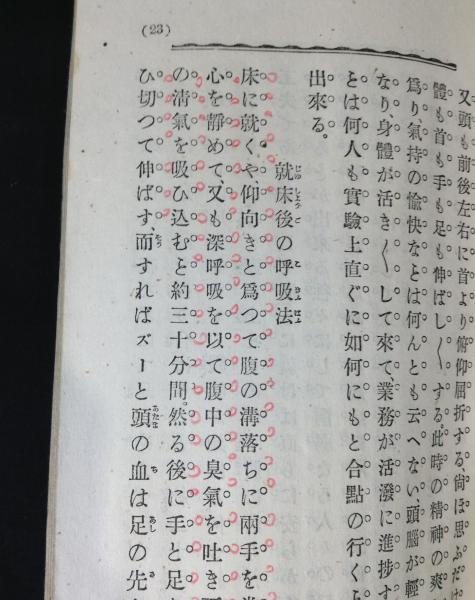 (23)
又頭も前後左右に首より俯仰屈折する尙ほ思ふだけ
體も首も手も足も伸ばし〳〵する。此時の精神の爽
爲り、氣持の愉快なとは何んとも云へない、頭腦が輕
なり、身體が活き〳〵して來て業務が活潑に進捗す
とは何人も實驗上直ぐに如何にもと合點の行くら
出來る。
就床後の呼吸法
床に就くや仰向きと爲つて腹の溝落ちに兩手を
心を靜めて、又も深呼吸を以て腹中の臭氣を吐き
の淸氣を吸ひ込むと約三十分間。然る後に手と足
ひ切つて伸ばす、而すればズーと頭の血は足の先